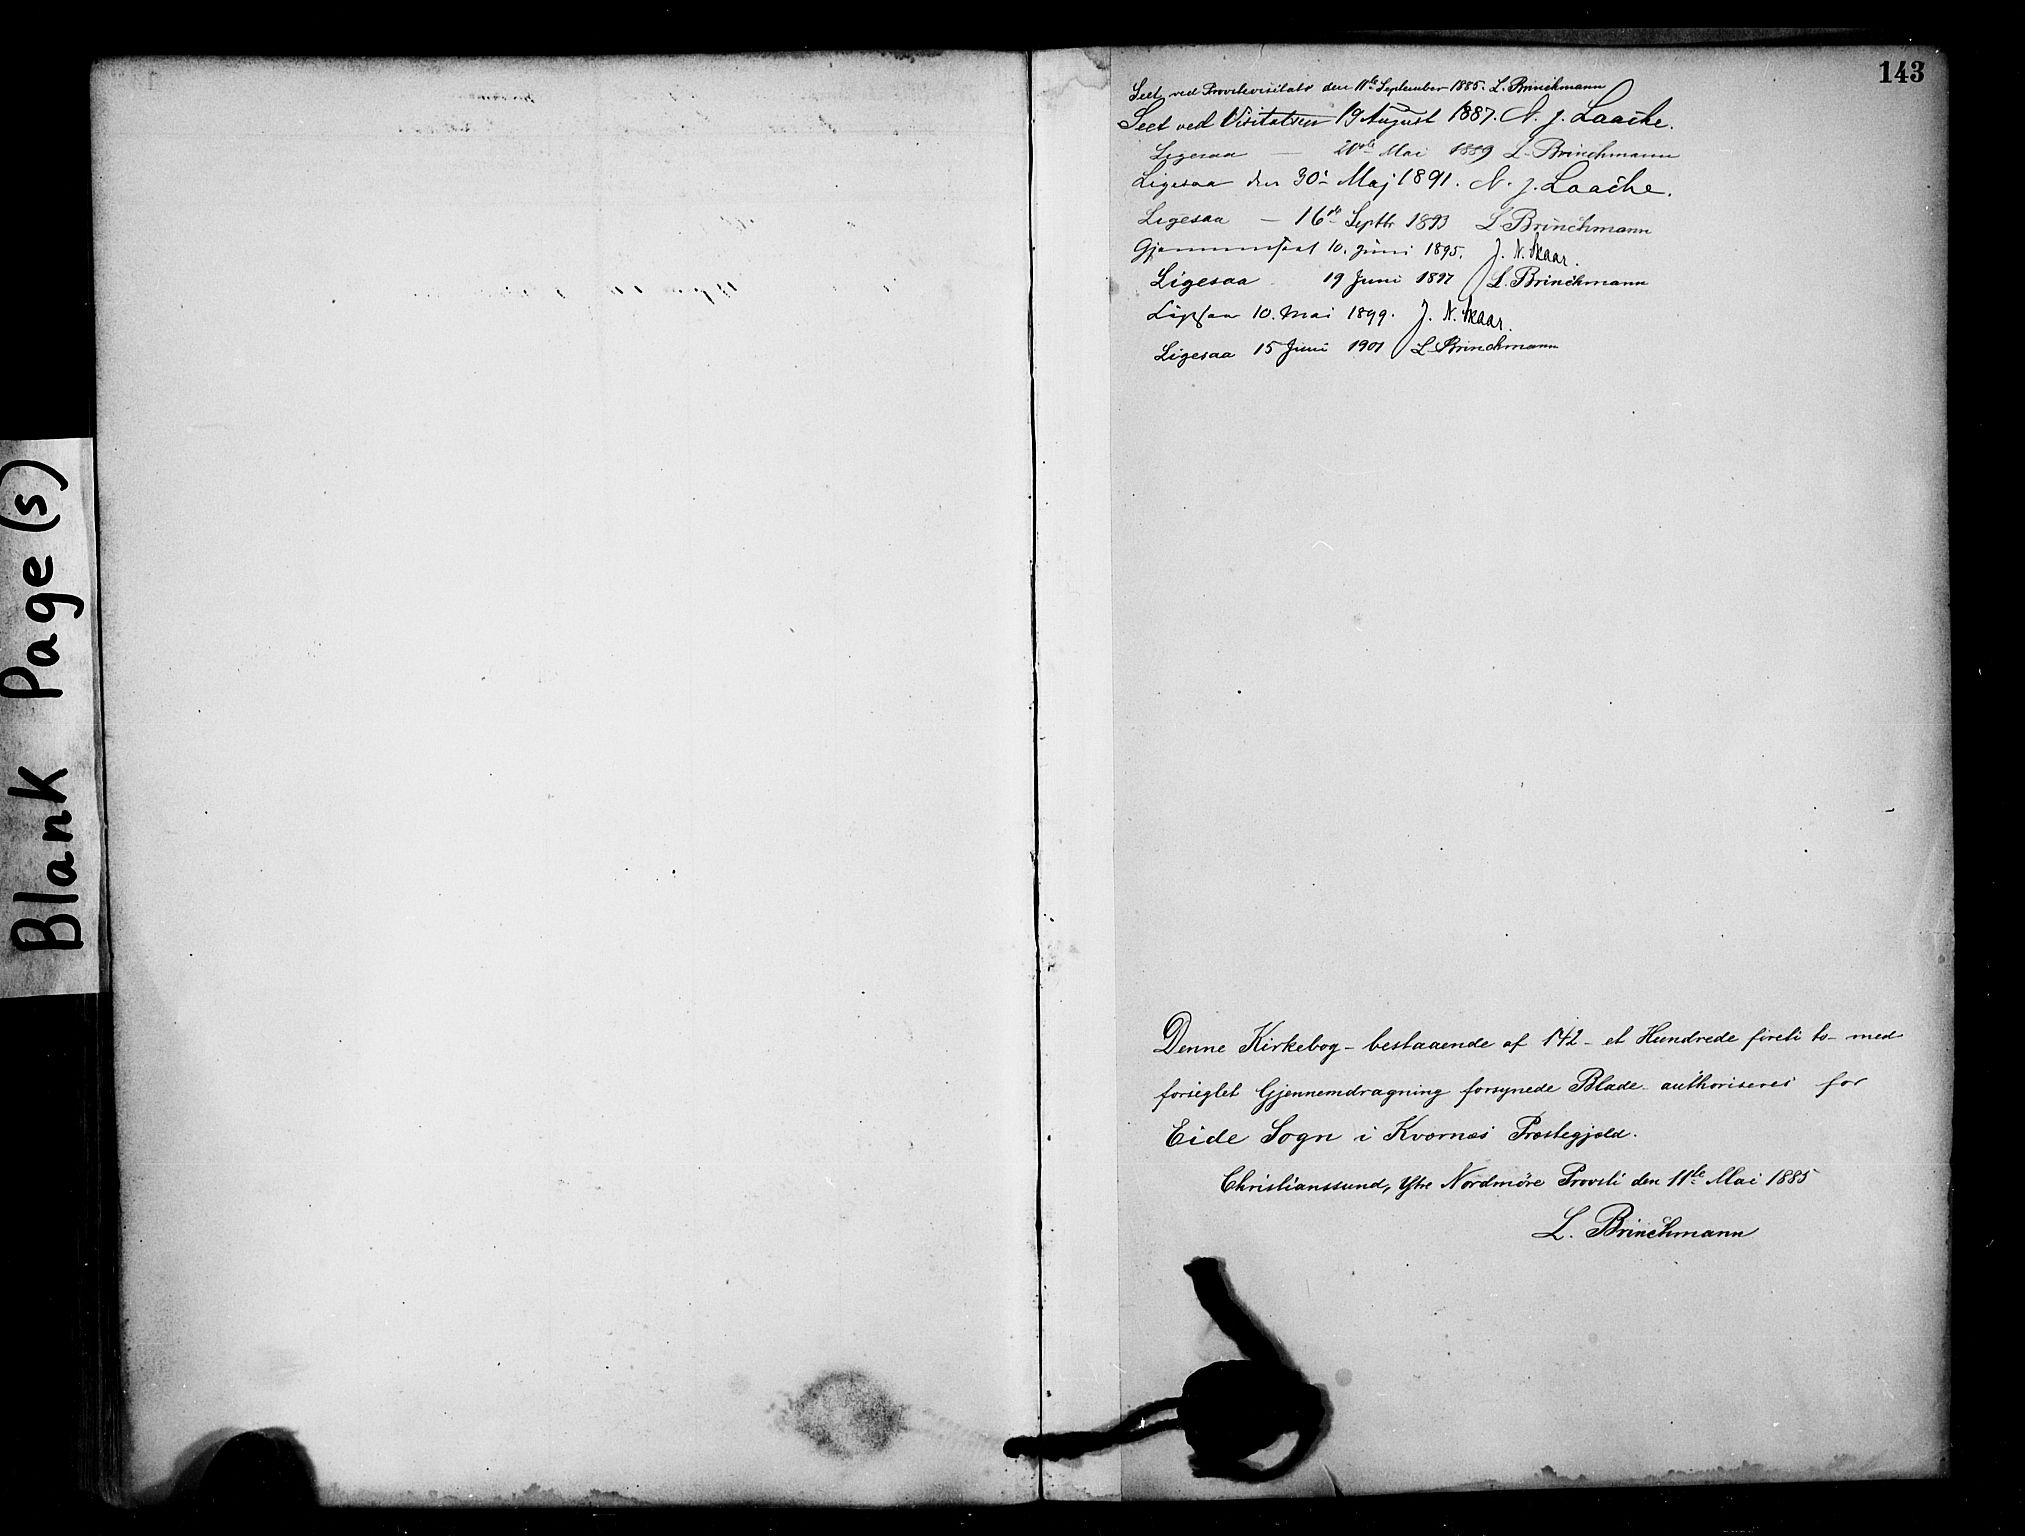 Blank Page(s)
143
Seet ved Provstevisitats den 11te September 1885. L. Brinchmann
Seet ved Visitatsen 19 August 1887. N. J. Laache.
Ligesaa — 20de Mai 1889 L. Brinchmann
Ligesaa den 30. Maj 1891. N. J. Laache.
Ligesaa — 16de Septbr 1893 L. Brinchmann
Gjennemseet 10. Juni 1895. J. N. Skaar.
Ligesaa 19 Juni 1897 L. Brinchmann
Ligesaa 10. Mai 1899. J. N. Skaar.
Ligesaa 15 Juni 1901 L. Brinchmann
Denne Kirkebog – bestaaende af 142 – et Hundrede fireti to – med
forseglet Gjennemdragning forsynede Blade – authoriseres for
Eide Sogn i Kvernæs Præstegjeld.
Christianssund, Ytre Nordmøre Provsti den 11te Mai 1885
L. Brinchmann